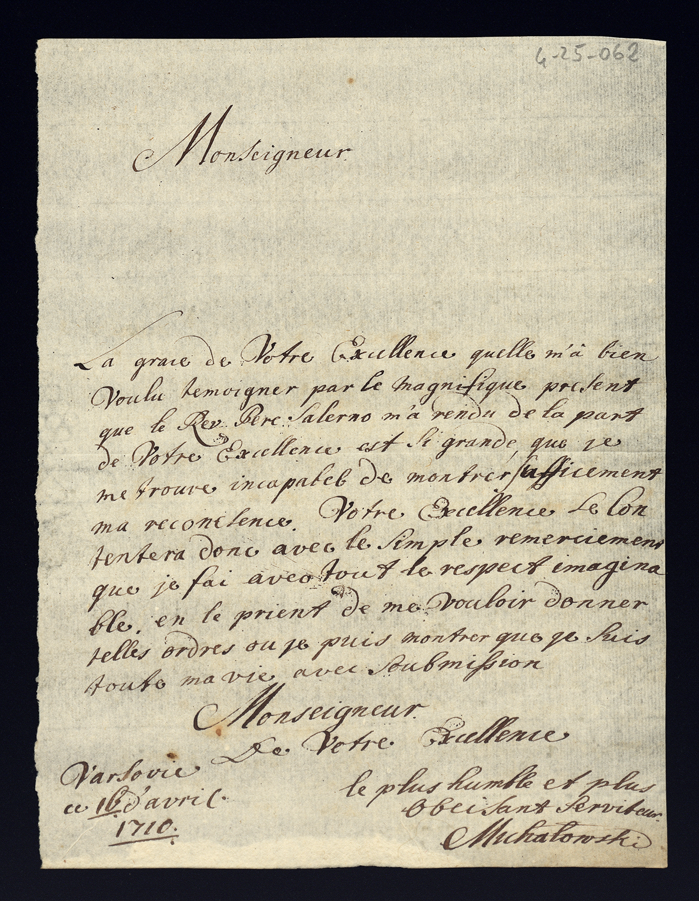 4-25-062
Monseigneur
La grace de Votre Excellence quelle m'à bien
Voulu temoigner par le magnifique present
que le Rev. Pere Salerno m'a rendu de la part
de Votre Excellence est si grande, que je
me trouve incapableb de montrer sufficement
ma reconcience. Votre Excellence se Con
tentera donc avec le simple remerciement
que je fai avec tout le respect imagina
ble, en le prient de me vouloir donner
telles ordres ou je puis montrer que je suis
toute ma vie avec soubmission
Monseigneur
De Votre Excellence
Varsovie
ce 16 d'avril.
1710.
le plus humble et plus
Obeisant Serviteur.
Michałowski